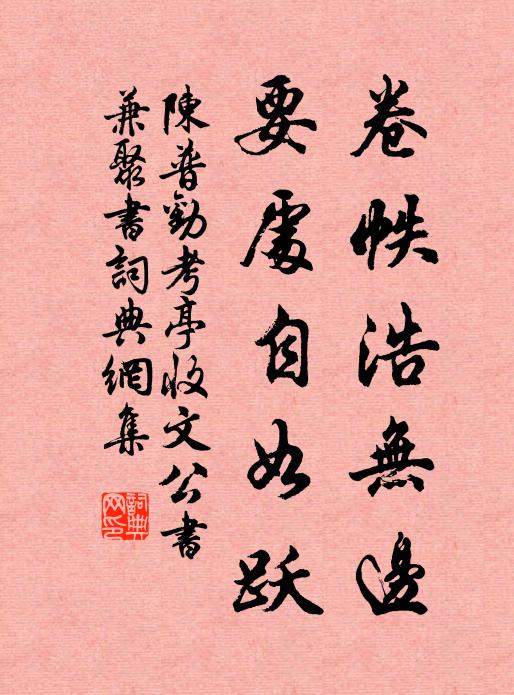 卷帙浩無邊
要處自如跃
陳普勸考亭收文公書
兼聚書詞典網集
詞典
网印